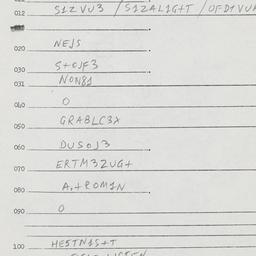 012 S1ZVU3 / S1ZALIG+T / OFD1VUA
020 NEJS
030 S+OJF3
031 NON81
040 O
050 GRABLC3X
060 DUSOJ3
070 ERTM3ZUG+
080 A,+ROM1N
090 O
100 HE5TN1S+T